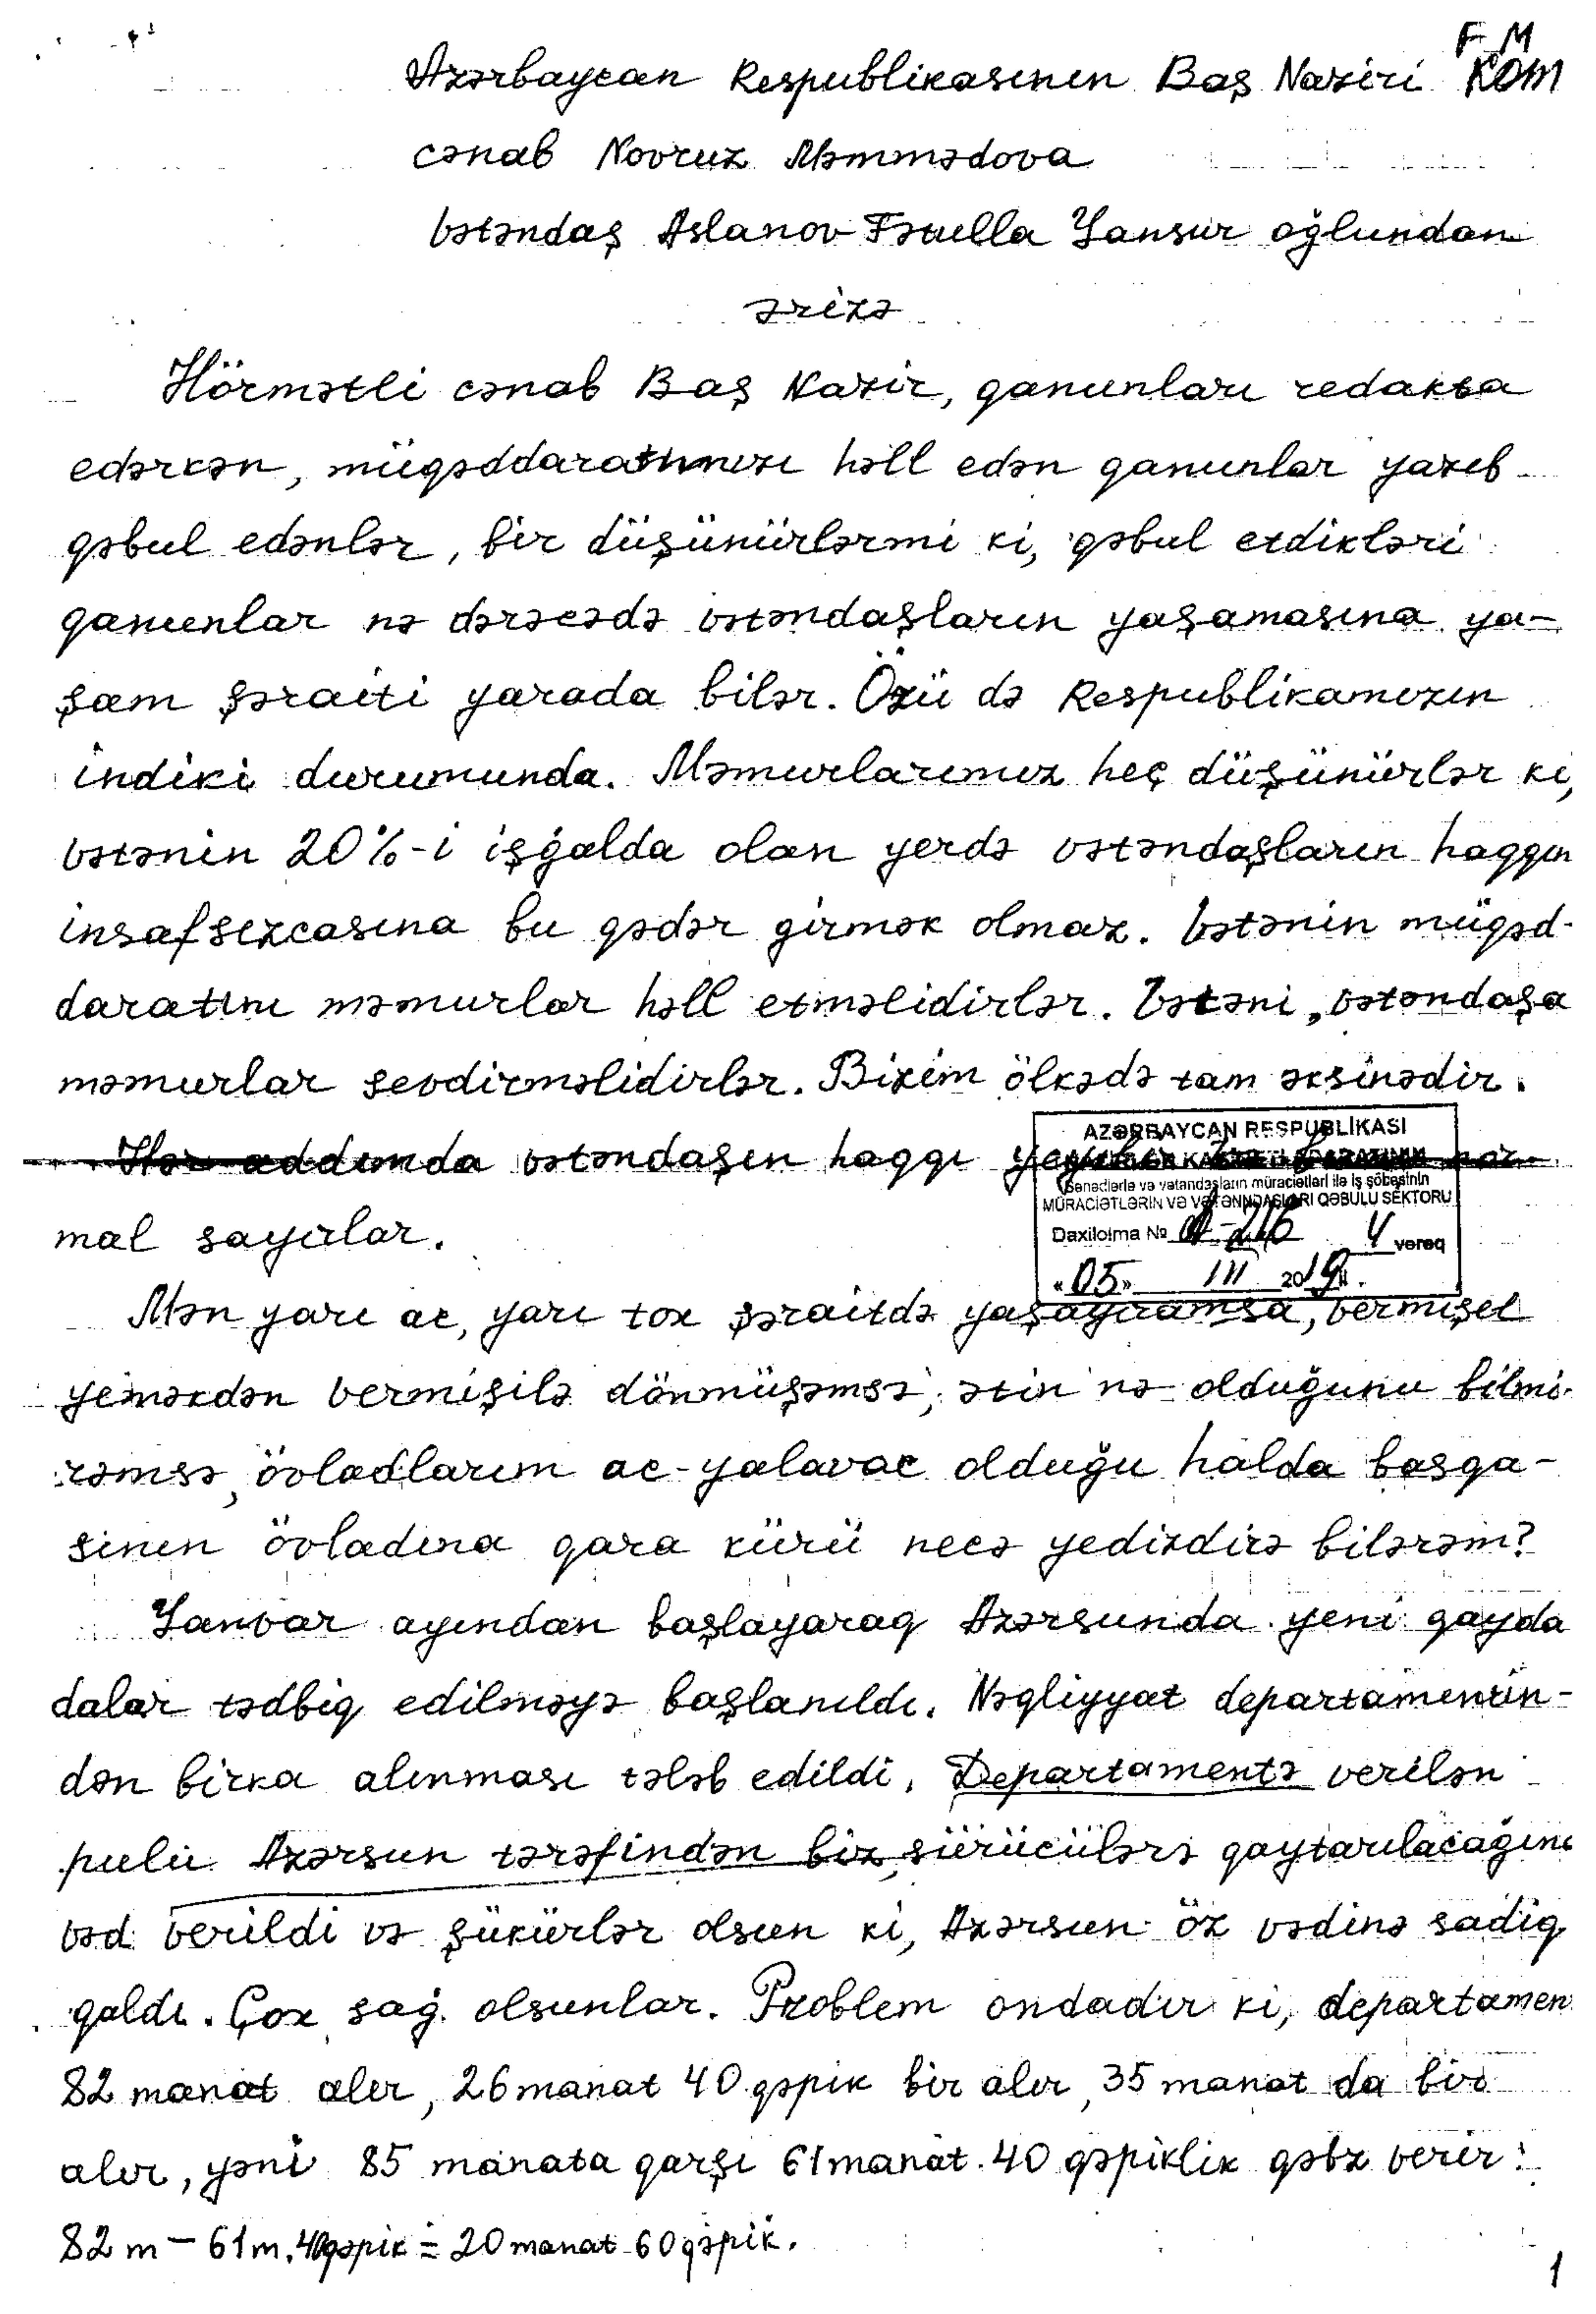 F M
Azərbaycan Respublikasının Baş Naziri KOM
cənab Novruz Məmmədova
Vətəndaş Aslanov Fətulla Yansur oğlundan
ərizə
Hörmətli cənab Baş Nazir, qanunları redaktə
edərkən, müqəddaratımızı həll edən qanunlar yazıb
qəbul edənlər, bir düşünürlərmi ki, qəbul etdikləri
qanunlar nə dərəcədə vətəndaşların yaşamasına ya-
şam şəraiti yarada bilər. Özü də Respublikamızın
indiki durumunda. Məmurlarımız heç düşünürlər ki,
vətənin 20%-i işğalda olan yerdə vətəndaşların haqqın
insafsızcasına bu qədər girmək olmaz. Vətənin müqəd-
daratını məmurlar həll etməlidirlər. Vətəni, vətəndaşa
məmurlar sevdirməlidirlər. Bizim ölkədə tam əksinədir.
Hər addımda vətəndaşın haqqı nor-
mal sayırlar.
AZƏRBAYCAN RESPUBLİKASI
Sənədlərlə və vətəndaşların müraciətləri ilə iş şöbəsinin
MÜRACİƏTLƏRİN VƏ VƏTƏNDAŞLARI QƏBULU SEKTORU
Daxilolma № 4 vərəq
«05» III 2019
Mən yarı ac, yarı tox şəraitdə yaşayıramsa, vermişel
yeməkdən vermişilə dönmüşəmsə, ətin nə olduğunu bilmi-
rəmsə, övladlarım ac-yalavac olduğu halda başqa-
sının övladına qara kürü necə yedizdirə bilərəm?
Yanvar ayından başlayaraq Azərsunda yeni qayda
dalar tədbiq edilməyə başlanıldı. Nəqliyyat departamentin-
dən birka alınması tələb edildi. Departamentə verilən
pulu Azərsun tərəfindən biz sürücülərə qaytarılacağını
vəd verildi və şükürlər olsun ki, Azərsun öz vədinə sadiq
qaldı. Çox sağ olsunlar. Problem ondadır ki, departamen
82 manat alır, 26 manat 40 qəpik bir alır, 35 manat da bir
alır, yəni 85 manata qarşı 61 manat 40 qəpiklik qəbz verir:
82 m - 61 m. 40 qəpik = 20 manat 60 qəpik.
1